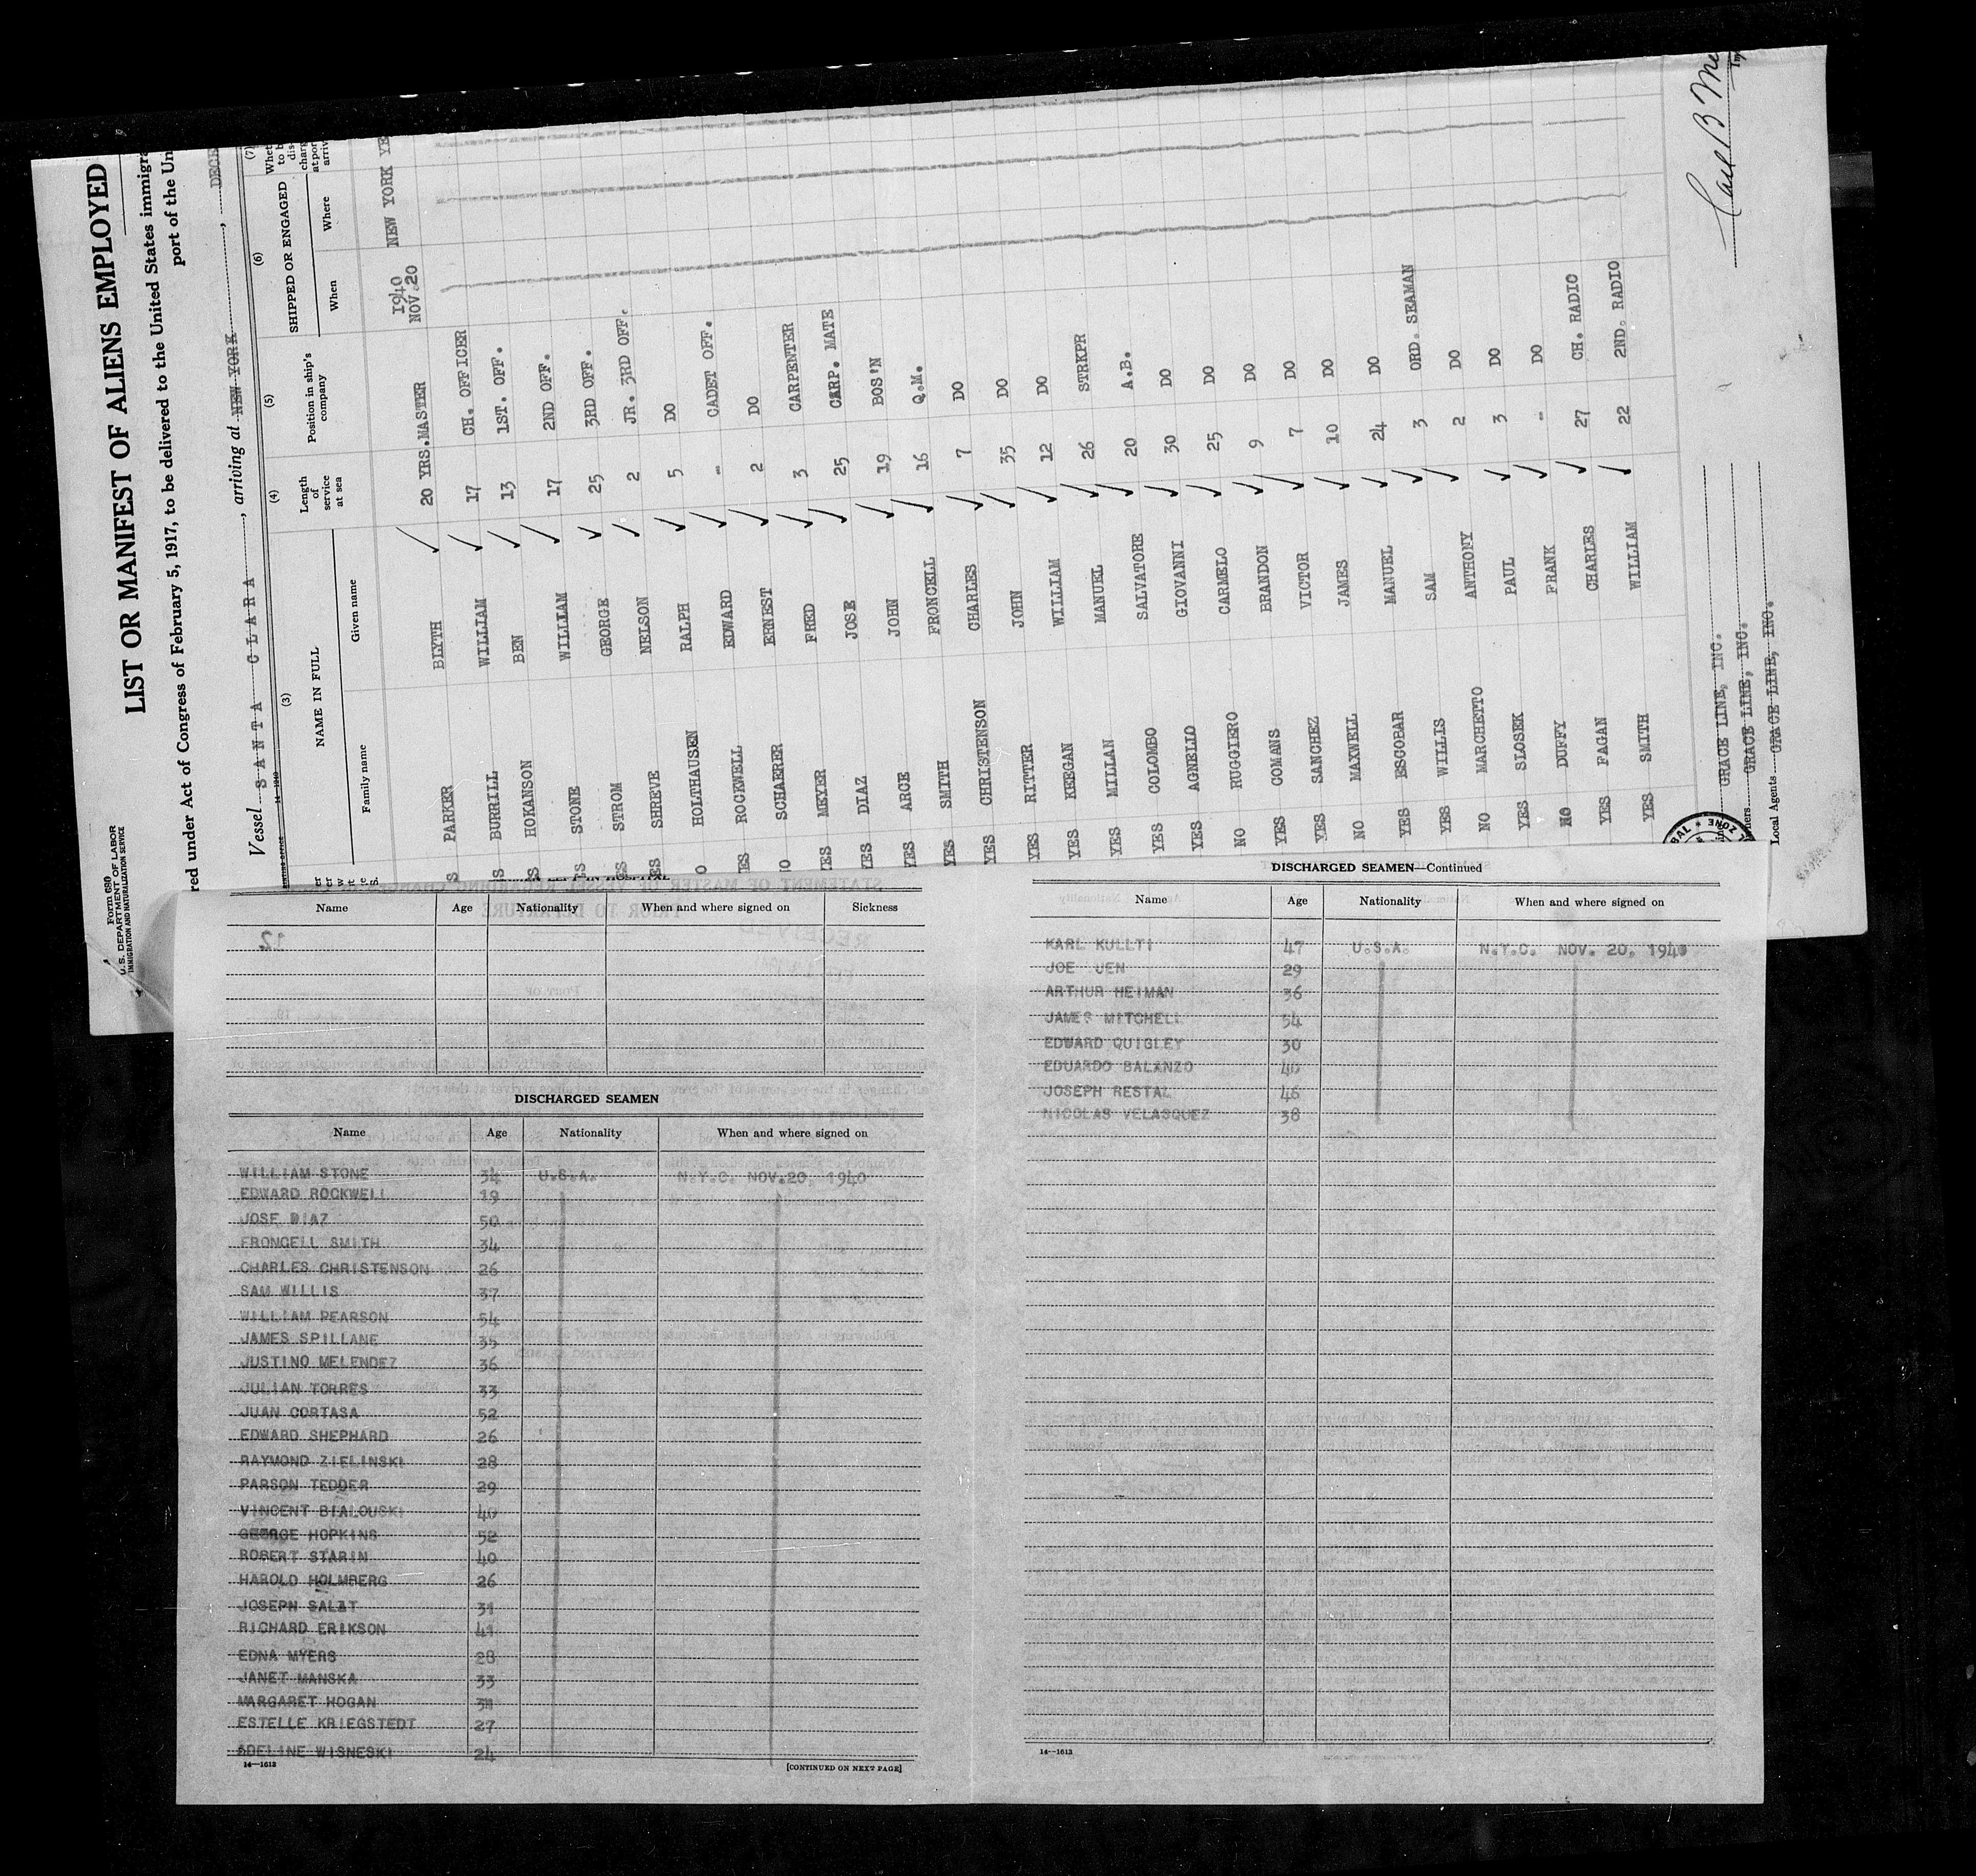 Form 680
U. S. DEPARTMENT OF LABOR
IMMIGRATION AND NATURALIZATION SERVICE
LIST OR MANIFEST OF ALIENS EMPLOYED
red under Act of Congress of February 5, 1917, to be delivered to the United States immigra
port of the Un
Vessel SANTA CLARA, arriving at NEW YORK, DECE
(3) (4) (5) (6) (7)
NAME IN FULL
Family name Given name
Length of service at sea
Position in ship's company
SHIPPED OR ENGAGED
When Where
PARKER BLYTH 20 YRS. MASTER 1940 NOV.20 NEW YORK YE
BURRILL WILLIAM 17 CH. OFFICER
HOKANSON BEN 13 1ST. OFF.
STONE WILLIAM 17 2ND OFF.
STROM GEORGE 25 3RD OFF.
SHREVE NELSON 2 JR. 3RD OFF.
HOLTHAUSEN RALPH 5 DO
ROCKWELL EDWARD - CADET OFF.
SCHAERER ERNEST 2 DO
YES MEYER FRED 3 CARPENTER
YES DIAZ JOSE 25 CARP. MATE
YES ARCE JOHN 19 BOS'N
YES SMITH FRONCELL 16 Q.M.
YES CHRISTENSON CHARLES 7 DO
YES RITTER JOHN 35 DO
YES KEEGAN WILLIAM 12 DO
YES MILLAN MANUEL 26 STRKPR
YES COLOMBO SALVATORE 20 A.B.
YES AGNELLO GIOVANNI 30 DO
NO RUGGIERO CARMELO 25 DO
YES COMANS BRANDON 9 DO
YES SANCHEZ VICTOR 7 DO
NO MAXWELL JAMES 10 DO
YES ESCOBAR MANUEL 24 DO
YES WILLIS SAM 3 ORD. SEAMAN
NO MARCHETTO ANTHONY 2 DO
YES SLOSEK PAUL 3 DO
NO DUFFY FRANK - DO
YES FAGAN CHARLES 27 CH. RADIO
YES SMITH WILLIAM 22 2ND. RADIO
GRACE LINE, INC.
GRACE LINE, INC.
Local Agents GRACE LINE, INC.
Carl B
Name Age Nationality When and where signed on Sickness
DISCHARGED SEAMEN
Name Age Nationality When and where signed on
WILLIAM STONE 34 U.S.A. N.Y.C. NOV.20, 1940
EDWARD ROCKWELL 19
JOSE DIAZ 50
FRONCELL SMITH 34
CHARLES CHRISTENSON 26
SAM WILLIS 37
WILLIAM PEARSON 54
JAMES SPILLANE 35
JUSTINO MELENDEZ 36
JULIAN TORRES 33
JUAN CORTASA 52
EDWARD SHEPHARD 26
RAYMOND ZIELINSKI 28
PARSON TEDDER 29
VINCENT BIALOUSKI 40
GEORGE HOPKINS 52
ROBERT STARIN 40
HAROLD HOLMBERG 26
JOSEPH SALAT 31
RICHARD ERIKSON 41
EDNA MYERS 28
JANET MANSKA 33
MARGARET HOGAN
ESTELLE KRIEGSTEDT 27
ADELINE WISNESKI 24
14—1613
[CONTINUED ON NEXT PAGE]
DISCHARGED SEAMEN—Continued
Name Age Nationality When and where signed on
KARL KULLTI 47 U.S.A. N.Y.C. NOV. 20, 1940
JOE JEN 29
ARTHUR HEIMAN 36
JAMES MITCHELL 54
EDWARD QUIGLEY 30
EDUARDO BALANZO 40
JOSEPH RESTAL 46
NICOLAS VELASQUEZ 38
14—1613